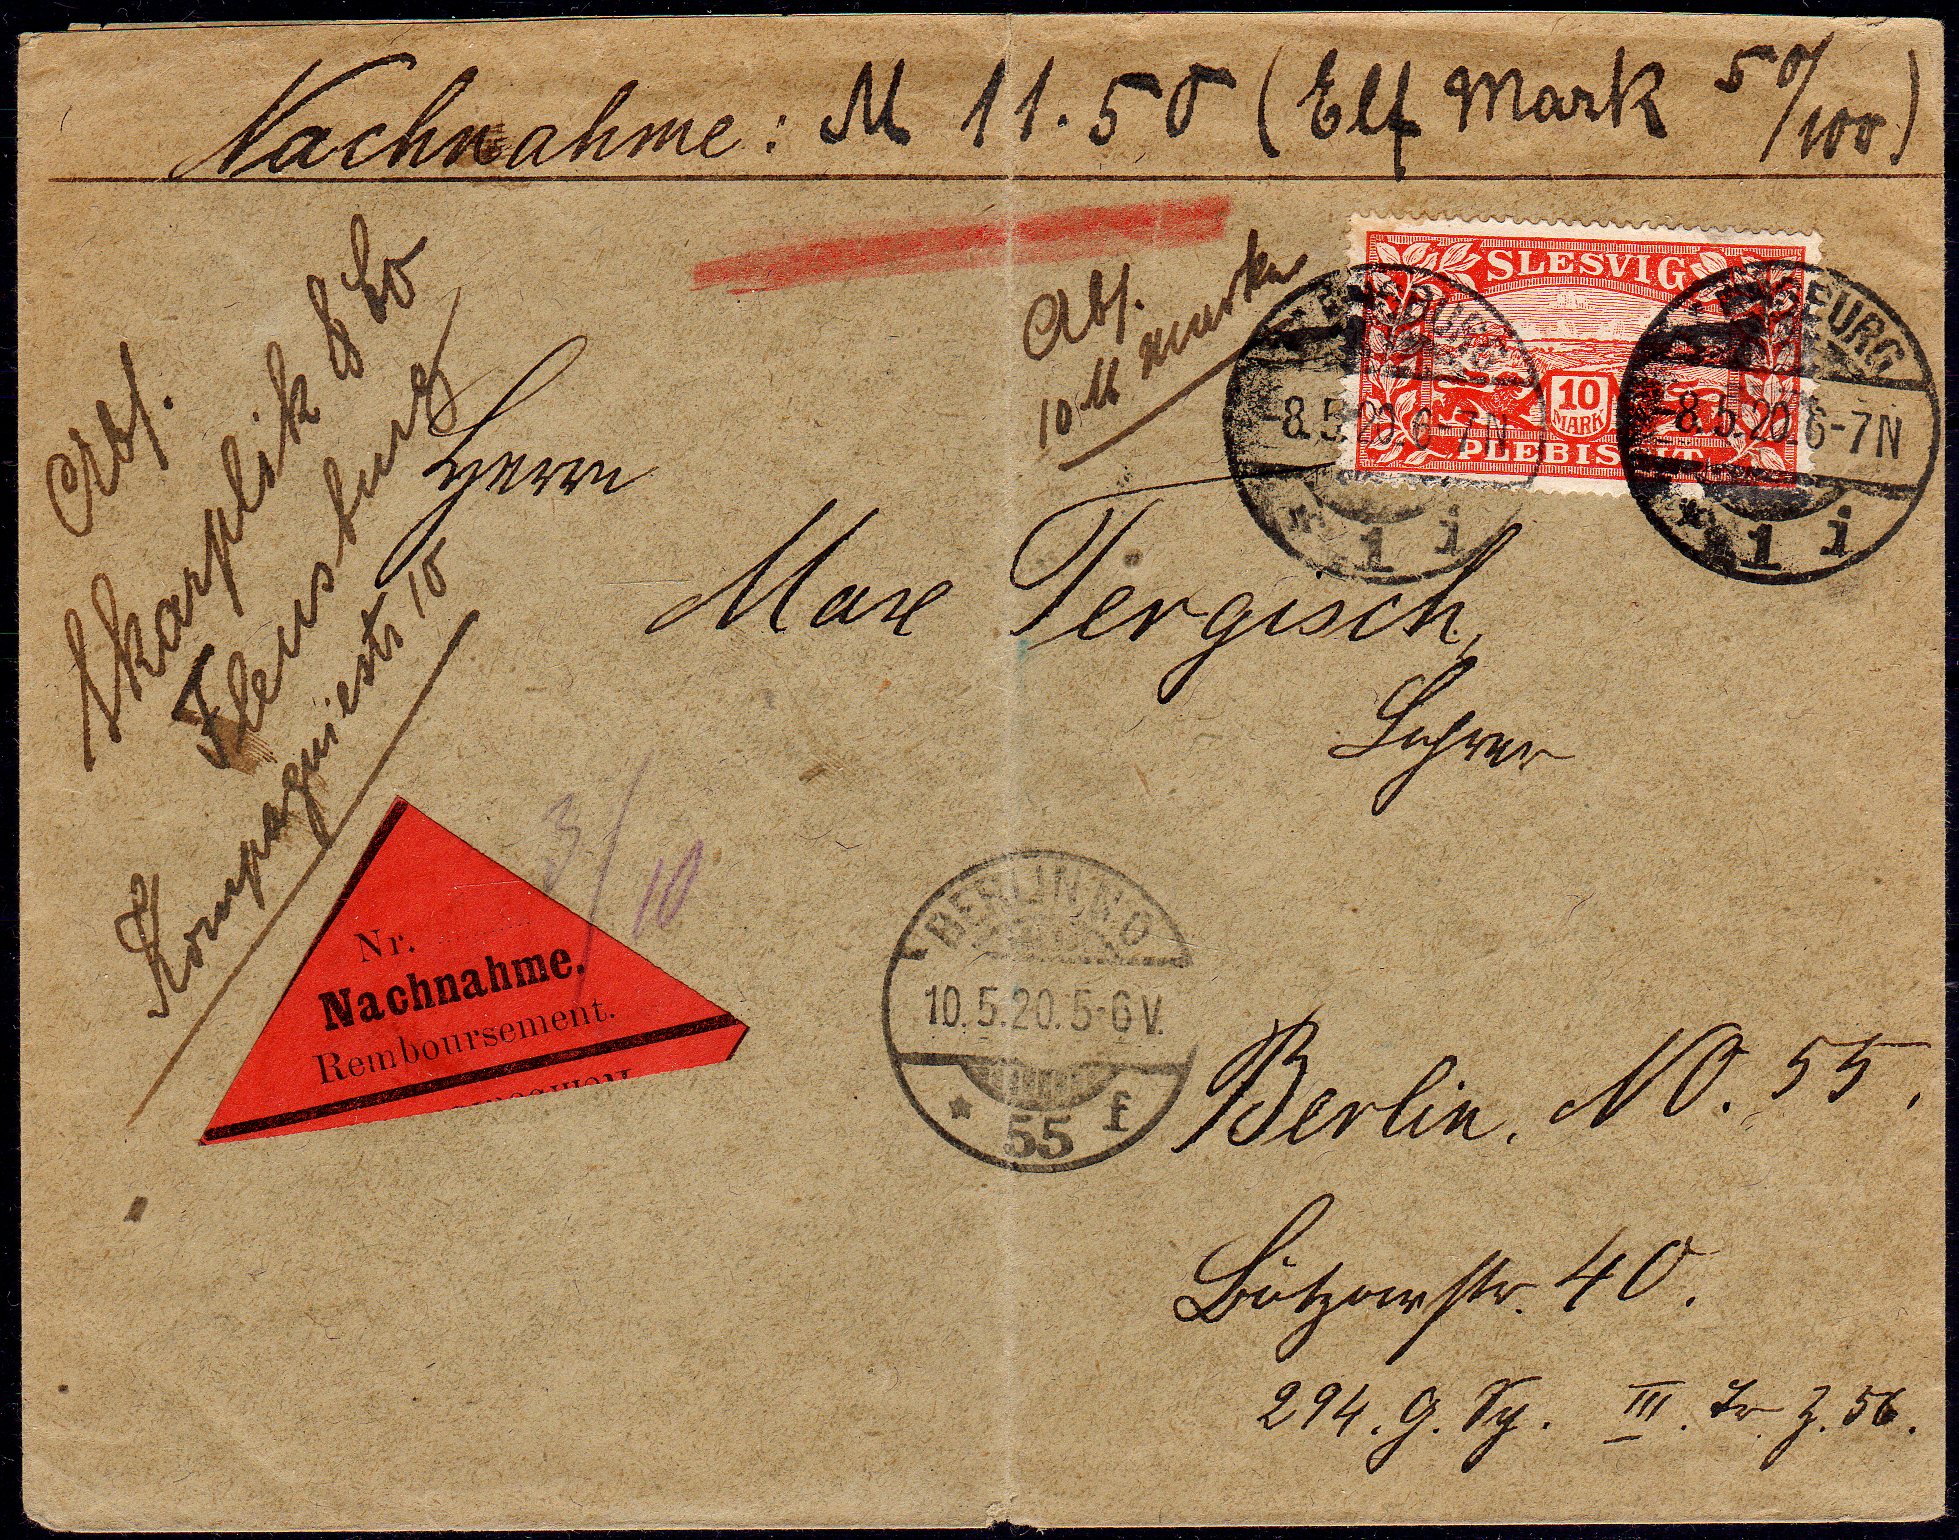 Nachnahme: M 11.50 (Elf Mark 50/100)
Abs.
Skarplik & Co
Flensburg
Kompagniestr 10
Abs.
10 M marken
SLESVIG
10
MARK
PLEBISCIT
FLENSBURG
-8.5.20.6-7N
* 1 i
FLENSBURG
-8.5.20.6-7N
* 1 i
Herrn
Max Tergisch,
Lehrer
3/10
Nr.
Nachnahme.
Remboursement.
BERLIN N.O
10.5.20.5-6V.
* 55 f
Berlin. NO. 55.
Lützowstr. 40.
294. G. III. Z. 56.